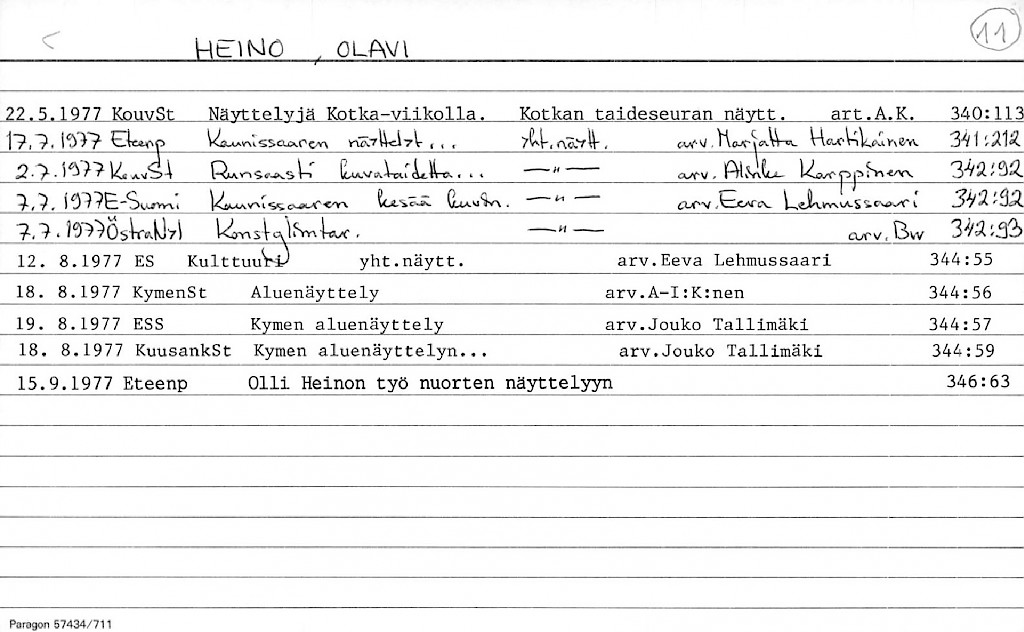 HEINO, OLAVI 11
22.5.1977 KouvSt Näyttelyjä Kotka-viikolla. Kotkan taideseuran näytt. art.A.K. 340:113
17.7.1977 Eteenp Kaunissaaren näyttelyt... yht.näytt. arv. Marjatta Hartikainen 341:212
2.7.1977 KouvSt Runsaasti kuvataidetta... —"— arv. Karppinen 342:92
7.7.1977 E-Suomi Kaunissaaren kesää kuvin. —"— arv. Eeva Lehmussaari 342:92
7.7.1977 ÖstraNyl Konstglimtar. —"— arv. Bw 342:93
12. 8.1977 ES Kulttuuri yht.näytt. arv.Eeva Lehmussaari 344:55
18. 8.1977 KymenSt Aluenäyttely arv.A-I:K:nen 344:56
19. 8.1977 ESS Kymen aluenäyttely arv.Jouko Tallimäki 344:57
18. 8.1977 KuusankSt Kymen aluenäyttelyn... arv.Jouko Tallimäki 344:59
15.9.1977 Eteenp Olli Heinon työ nuorten näyttelyyn 346:63
Paragon 57434/711